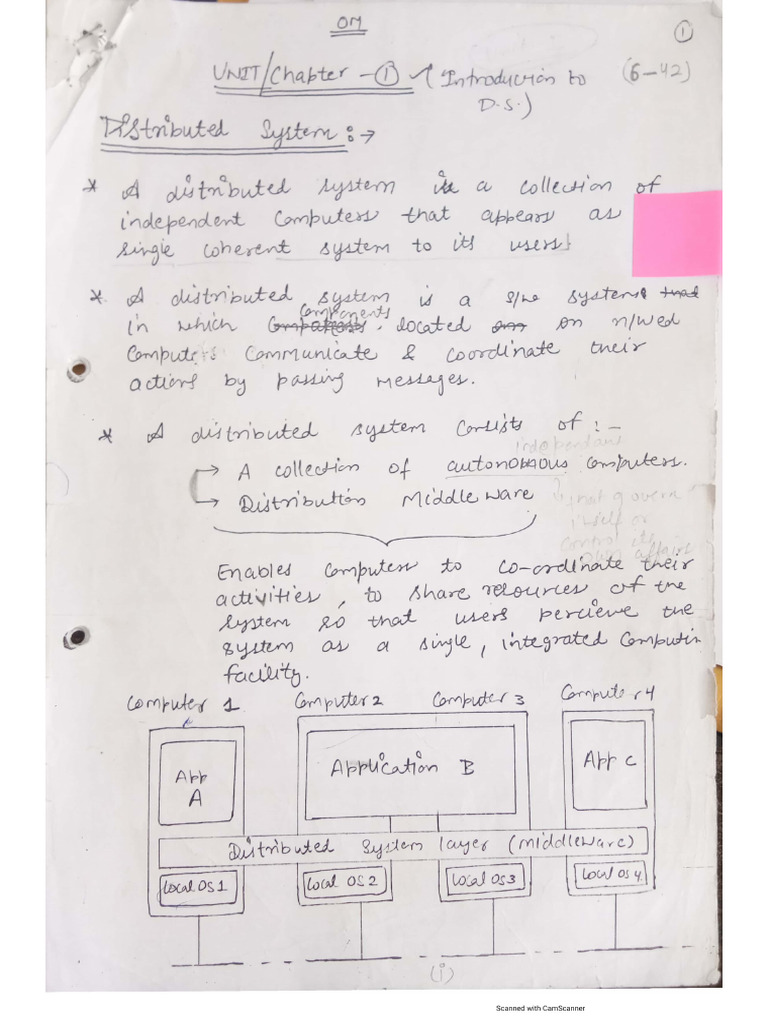 OM
1
UNIT/Chapter - 1 (Introduction to (6-42)
D.S.)
Distributed System :→
* A distributed system is a collection of
independent computers that appears as
single coherent system to its users
* A distributed system is a s/w system that
components
in which located on n/wed
Computers communicate & coordinate their
actions by passing messages.
* A distributed system consists of :-
→ A collection of autonomous computers.
→ Distribution Middleware
not govern
itself or
control its
own affairs
Enables computers to co-ordinate their
activities, to share resources of the
system so that users percieve the
system as a single, integrated computin
facility.
Computer 1 Computer 2 Computer 3 Computer 4
App A
Application B
App C
Distributed System layer (middleware)
Local OS1 Local OS2 Local OS3 Local OS4
(i)
Scanned with CamScanner